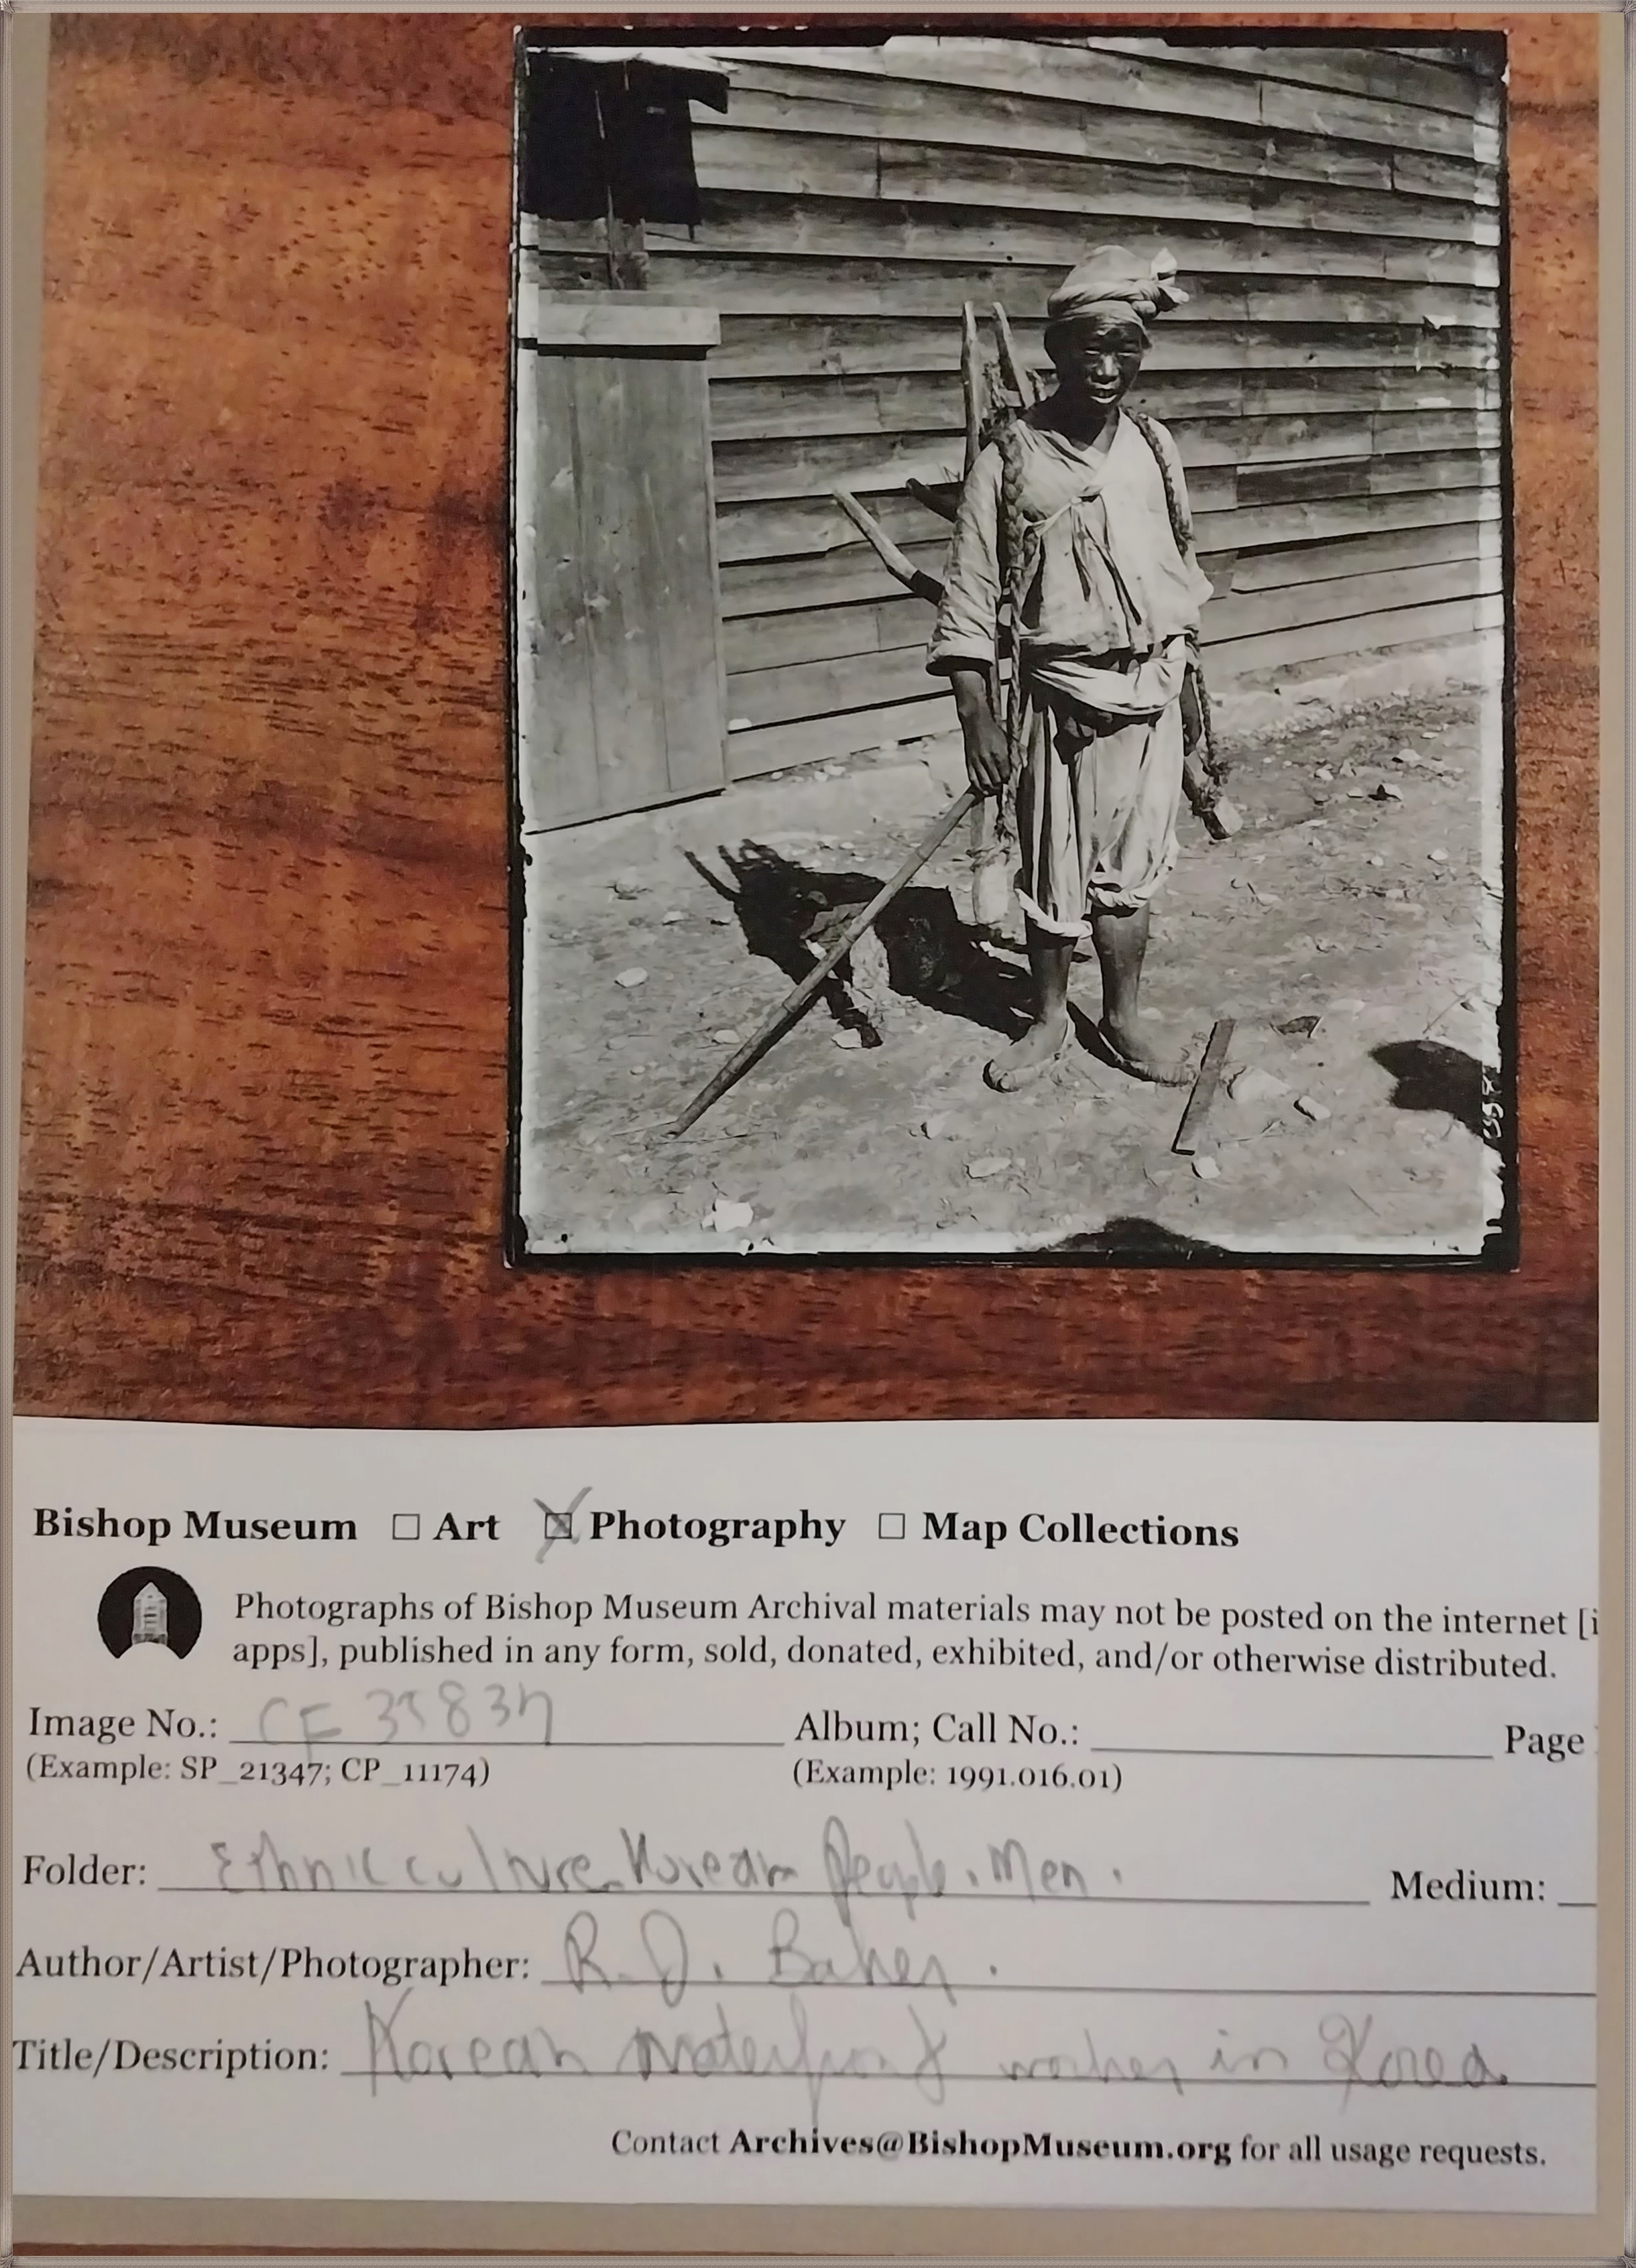 Bishop Museum ☐ Art ☒ Photography ☐ Map Collections
Photographs of Bishop Museum Archival materials may not be posted on the internet [i
apps], published in any form, sold, donated, exhibited, and/or otherwise distributed.
Image No.: Album; Call No.: Page
(Example: SP_21347; CP_11174) (Example: 1991.016.01)
Folder: Ethnic culture. Korean People. Men. Medium:
Author/Artist/Photographer: R. J. Baker.
Title/Description: Korean waterfront worker in Korea.
Contact Archives@BishopMuseum.org for all usage requests.